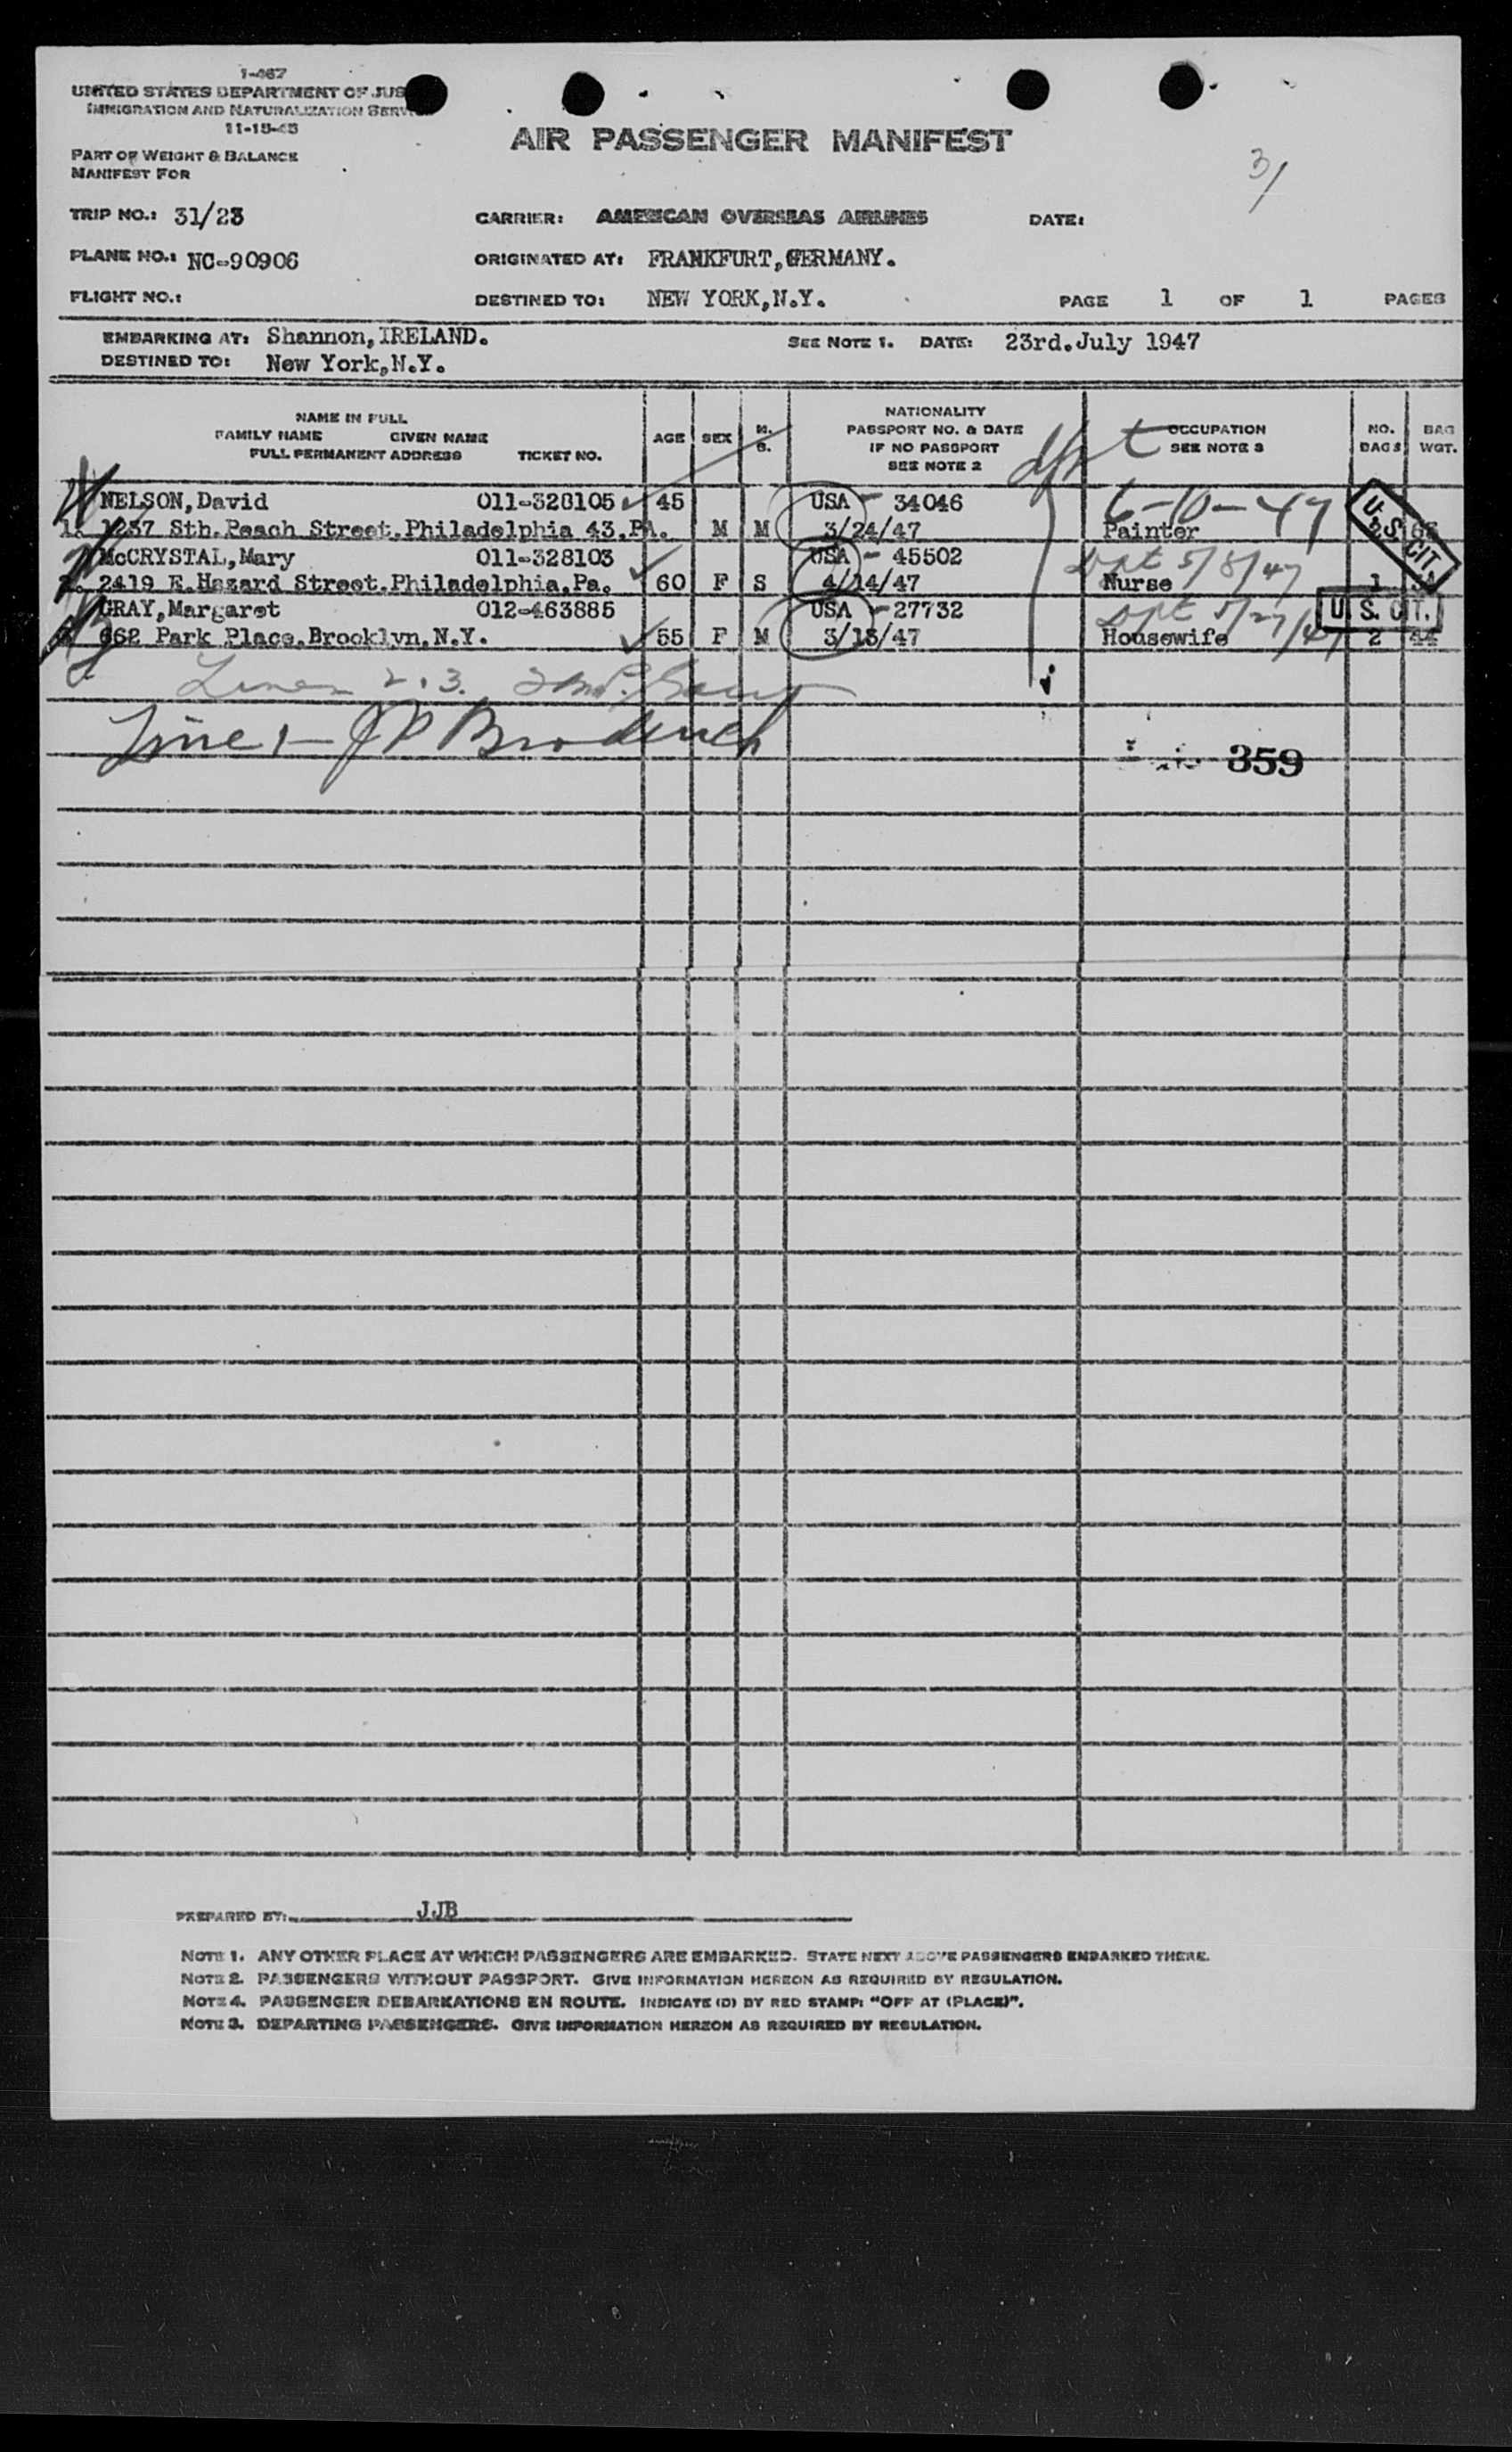 1-467
UNITED STATES DEPARTMENT OF JUS
IMMIGRATION AND NATURALIZATION SERV
11-15-45
AIR PASSENGER MANIFEST
PART OF WEIGHT & BALANCE
MANIFEST FOR
3/
TRIP NO.: 31/23 CARRIER: AMERICAN OVERSEAS AIRLINES DATE:
PLANE NO.: NC-90906 ORIGINATED AT: FRANKFURT,GERMANY.
FLIGHT NO.: DESTINED TO: NEW YORK,N.Y. PAGE 1 OF 1 PAGES
EMBARKING AT: Shannon,IRELAND. SEE NOTE 1. DATE: 23rd.July 1947
DESTINED TO: New York,N.Y.
NAME IN FULL
FAMILY NAME GIVEN NAME
FULL PERMANENT ADDRESS TICKET NO.
AGE SEX M. S.
NATIONALITY
PASSPORT NO. & DATE
IF NO PASSPORT
SEE NOTE 2
OCCUPATION
SEE NOTE 3
NO. BAGS
BAG WGT.
dpt
NELSON,David 011-328105 45 USA - 34046 6-10-47
1. 1237 Sth.Peach Street.Philadelphia 43.PA. M M 3/24/47 Painter
U.S. CIT
McCRYSTAL,Mary 011-328103 USA - 45502 Dpt 5/8/47
2. 2419 E.Hazard Street.Philadelphia,Pa. 60 F S 4/14/47 Nurse 1
GRAY,Margaret 012-463885 USA - 27732 Dpt 5/27/47 U.S. CIT.
3. 662 Park Place,Brooklyn,N.Y. 55 F M 3/13/47 Housewife 2 44
Lines 2.3.
Line 1 - JP Broderick
359
PREPARED BY: JJB
NOTE 1. ANY OTHER PLACE AT WHICH PASSENGERS ARE EMBARKED. STATE NEXT ABOVE PASSENGERS EMBARKED THERE.
NOTE 2. PASSENGERS WITHOUT PASSPORT. GIVE INFORMATION HEREON AS REQUIRED BY REGULATION.
NOTE 4. PASSENGER DEBARKATIONS EN ROUTE. INDICATE (D) BY RED STAMP: "OFF AT (PLACE)".
NOTE 3. DEPARTING PASSENGERS. GIVE INFORMATION HEREON AS REQUIRED BY REGULATION.